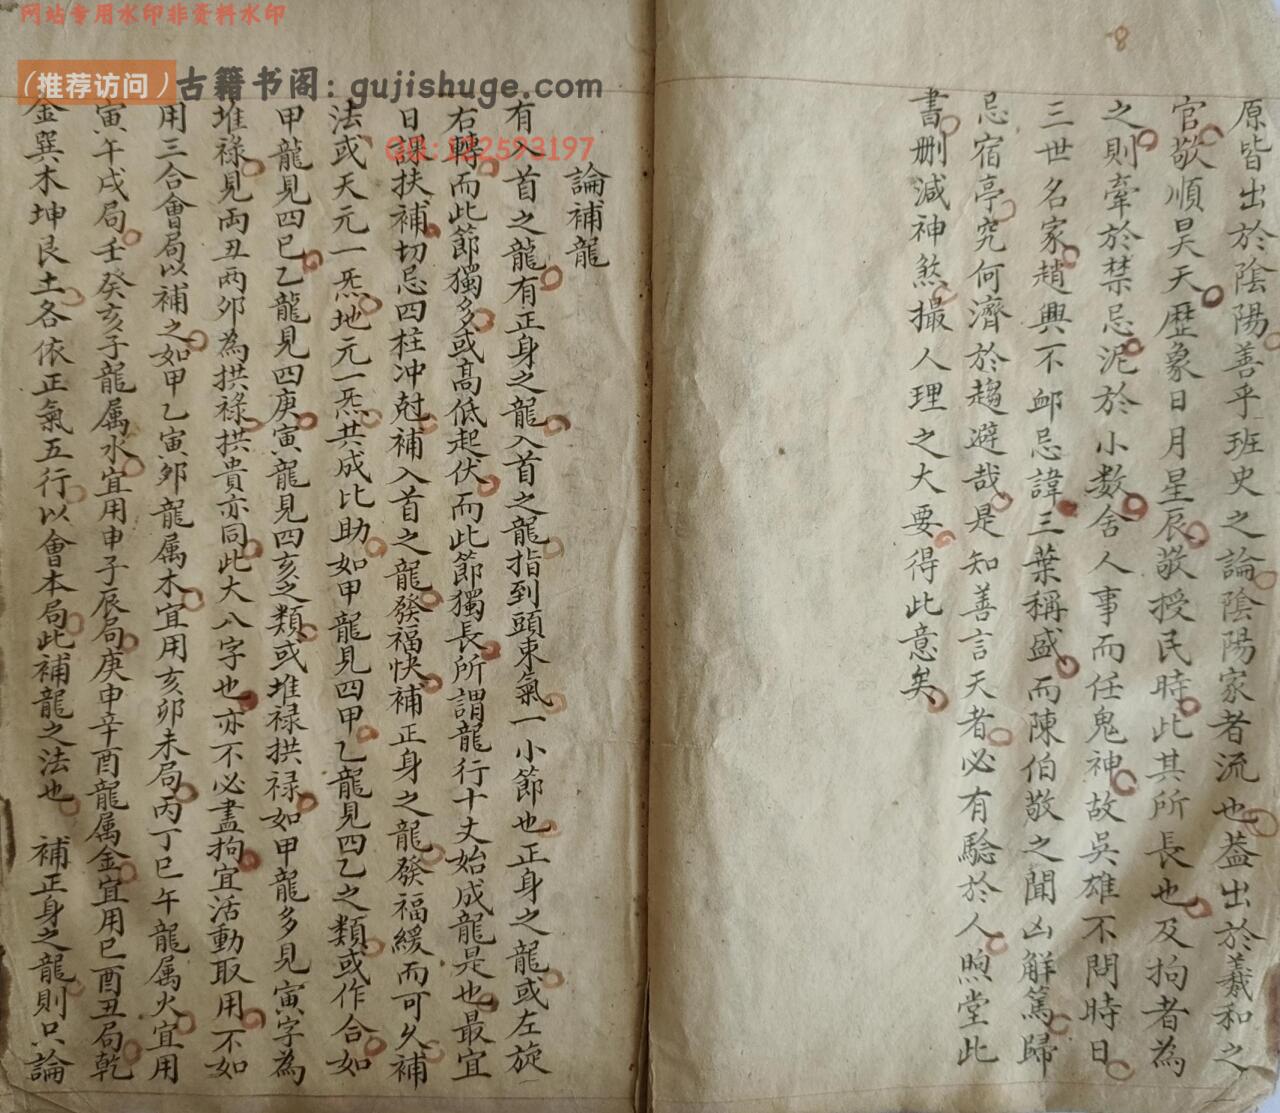 网站专用水印非资料水印
（推荐访问）古籍书阁：gujishuge.com
8
原皆出於陰陽善乎班史之論陰陽家者流也葢出於羲和之
官敬順昊天歷象日月星辰敬授民時此其所長也及拘者為
之則牽於禁忌泥於小数舍人事而任鬼神故吳雄不問時日
三世名家趙興不邺忌諱三葉稱盛而陳伯敬之聞凶解篤歸
忌宿亭究何濟於趨避哉是知善言天者必有驗於人煦堂此
書刪減神煞撮人理之大要得此意矣
論補龍
有入首之龍有正身之龍入首之龍指到頭束氣一小節也正身之龍或左旋
右轉而此節獨多或高低起伏而此節獨長所謂龍行十丈始成龍是也最宜
日課扶補切忌四柱冲尅補入首之龍發福快補正身之龍發福緩而可久補
法或天元一炁地元一炁共成比助如甲龍見四甲乙龍見四乙之類或作合如
甲龍見四巳乙龍見四庚寅龍見四亥之類或堆禄拱禄如甲龍多見寅字為
堆祿見両丑両夘為拱祿拱貴亦同此大八字也亦不必盡拘宜活動取用不如
用三合會局以補之如甲乙寅夘龍属木宜用亥卯未局丙丁巳午龍属火宜用
寅午戌局壬癸亥子龍属水宜用申子辰局庚申辛酉龍属金宜用巳酉丑局乾
金巽木坤艮土各依正氣五行以會本局此補龍之法也　補正身之龍則只論